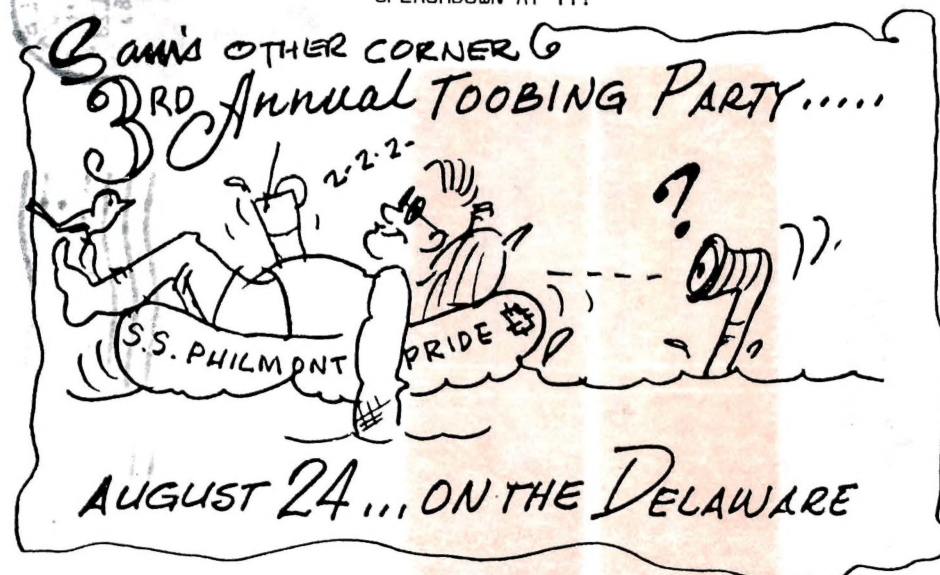 SPLASHDOWN AT 11!
Sam's OTHER CORNER
3RD Annual TOOBING PARTY.....
z-z-z-
?
S.S. PHILMONT PRIDE
AUGUST 24... ON THE DELAWARE